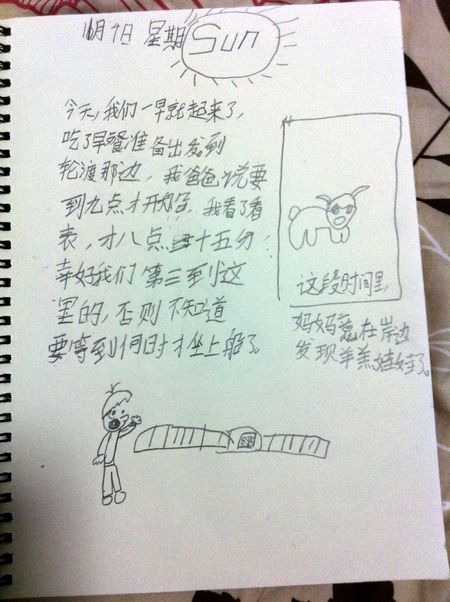 月1日 星期 Sun
今天,我们一早就起来了,
吃了早餐准备出发到
轮渡那边,我爸爸说要
到九点才开始,我看了看
表,才八点三十五分
幸好我们第三到这
里的,否则不知道
要等到何时才坐上船了。
这段时间里,
妈妈竟在岸边
发现羊羔娃娃了。